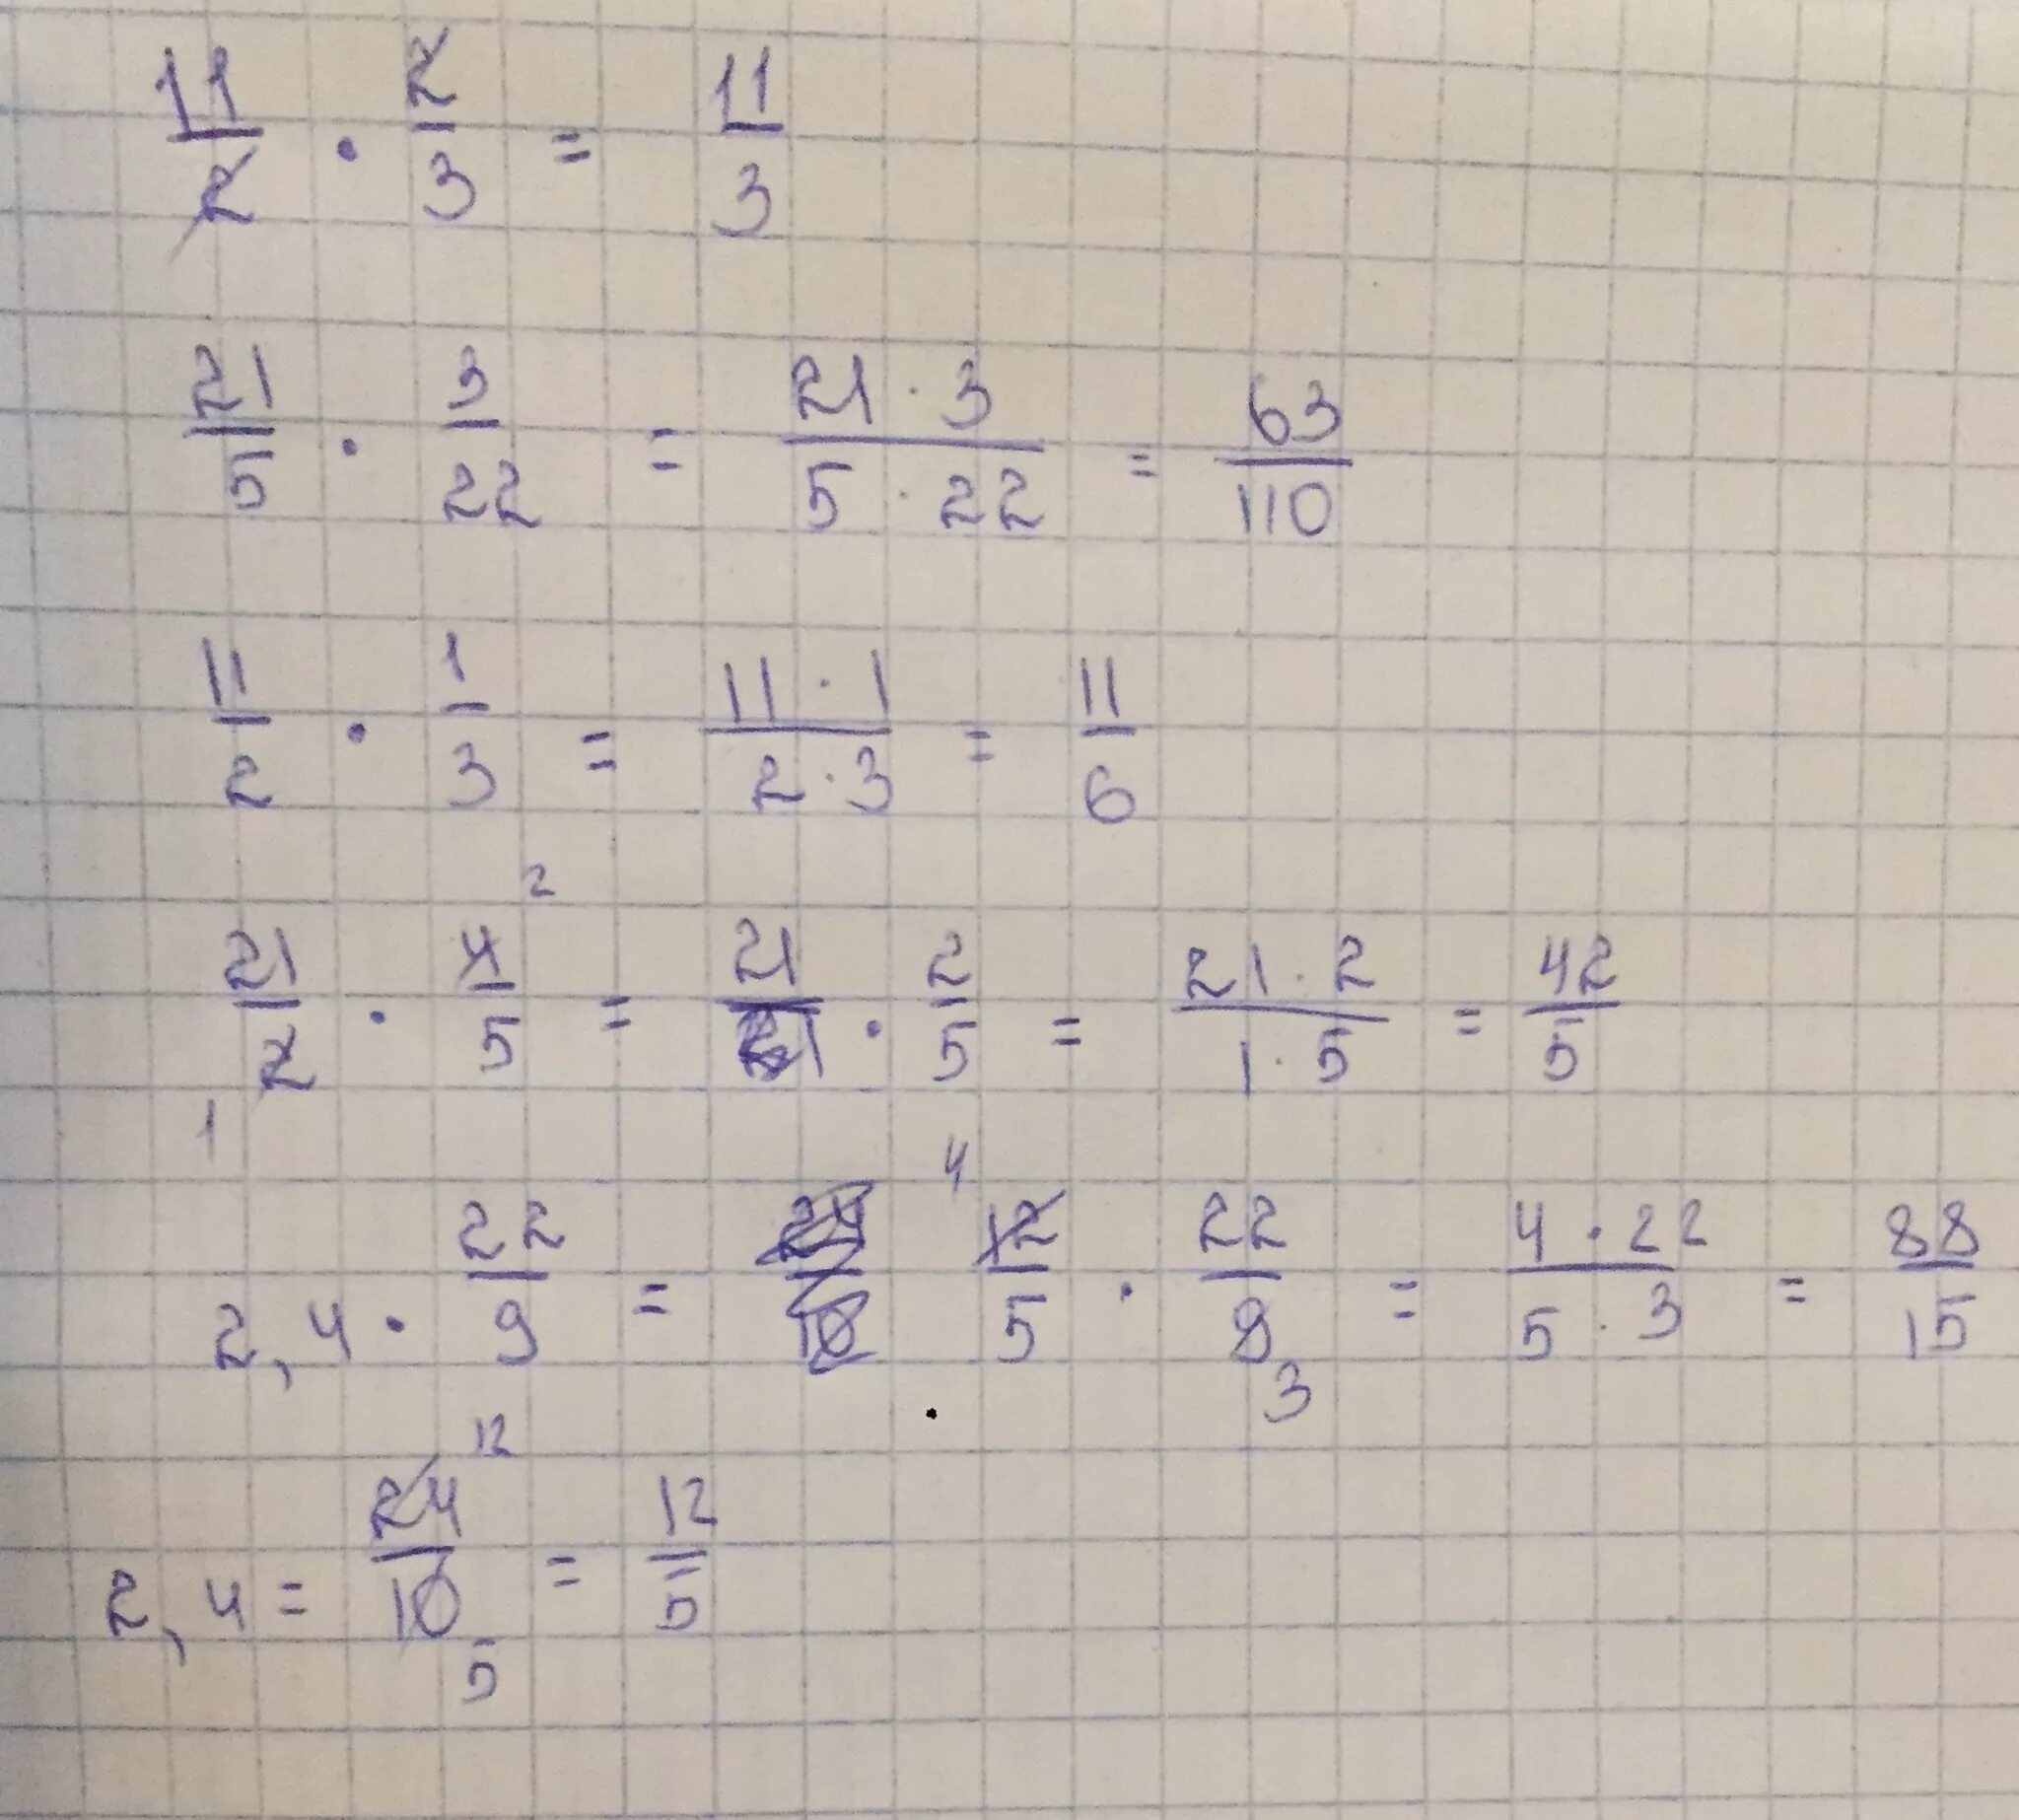 11/2 · 2/3 = 11/3
21/5 · 3/22 = 21 · 3/5 · 22 = 63/110
11/2 · 1/3 = 11 · 1/2 · 3 = 11/6
21/2 1 · 4/5 2 = 21/1 · 2/5 = 21 · 2/1 · 5 = 42/5
2,4 · 22/9 = 24/10 4 12/5 · 22/9 3 = 4 · 22/5 · 3 = 88/15
2,4 = 24/10 12 5 = 12/5